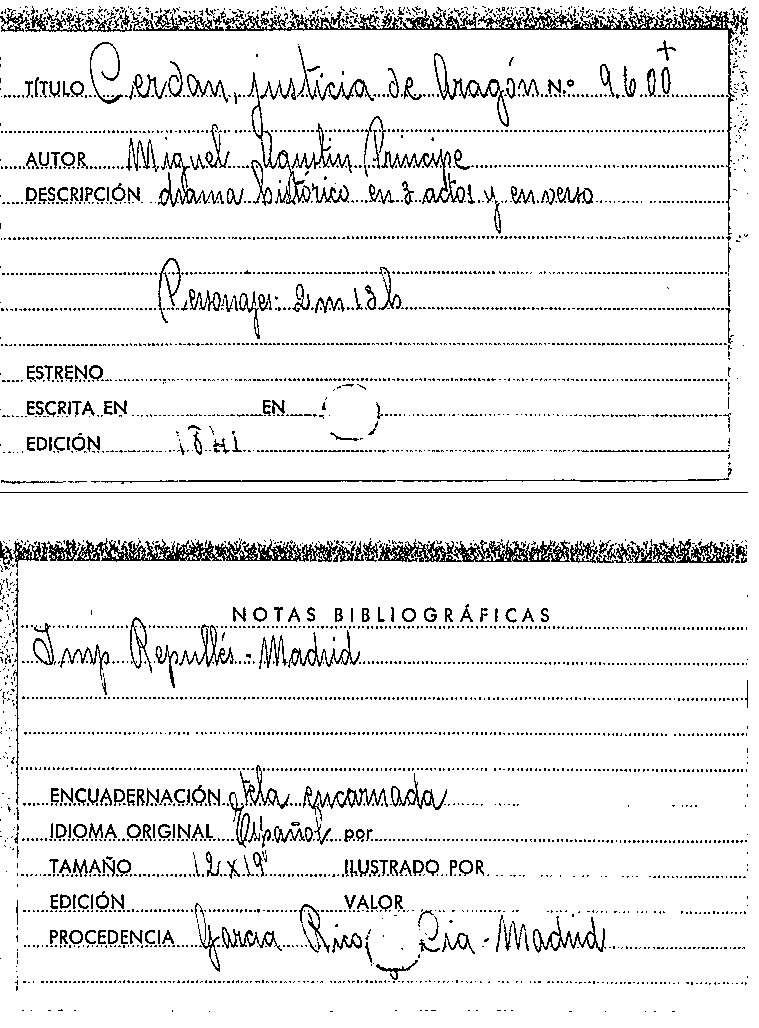 TÍTULO Cerdan, justicia de Aragón N.º 9.600 +
AUTOR Miguel Agustin Principe
DESCRIPCIÓN drama histórico en 3 actos y en verso
Personajes: 2 m 13 h
ESTRENO
ESCRITA EN EN
EDICIÓN 1841
NOTAS BIBLIOGRÁFICAS
Imp Repullés - Madrid
ENCUADERNACIÓN tela encarnada
IDIOMA ORIGINAL Español por
TAMAÑO 12 x 19 ILUSTRADO POR
EDICIÓN VALOR
PROCEDENCIA Garcia Rico Cia - Madrid